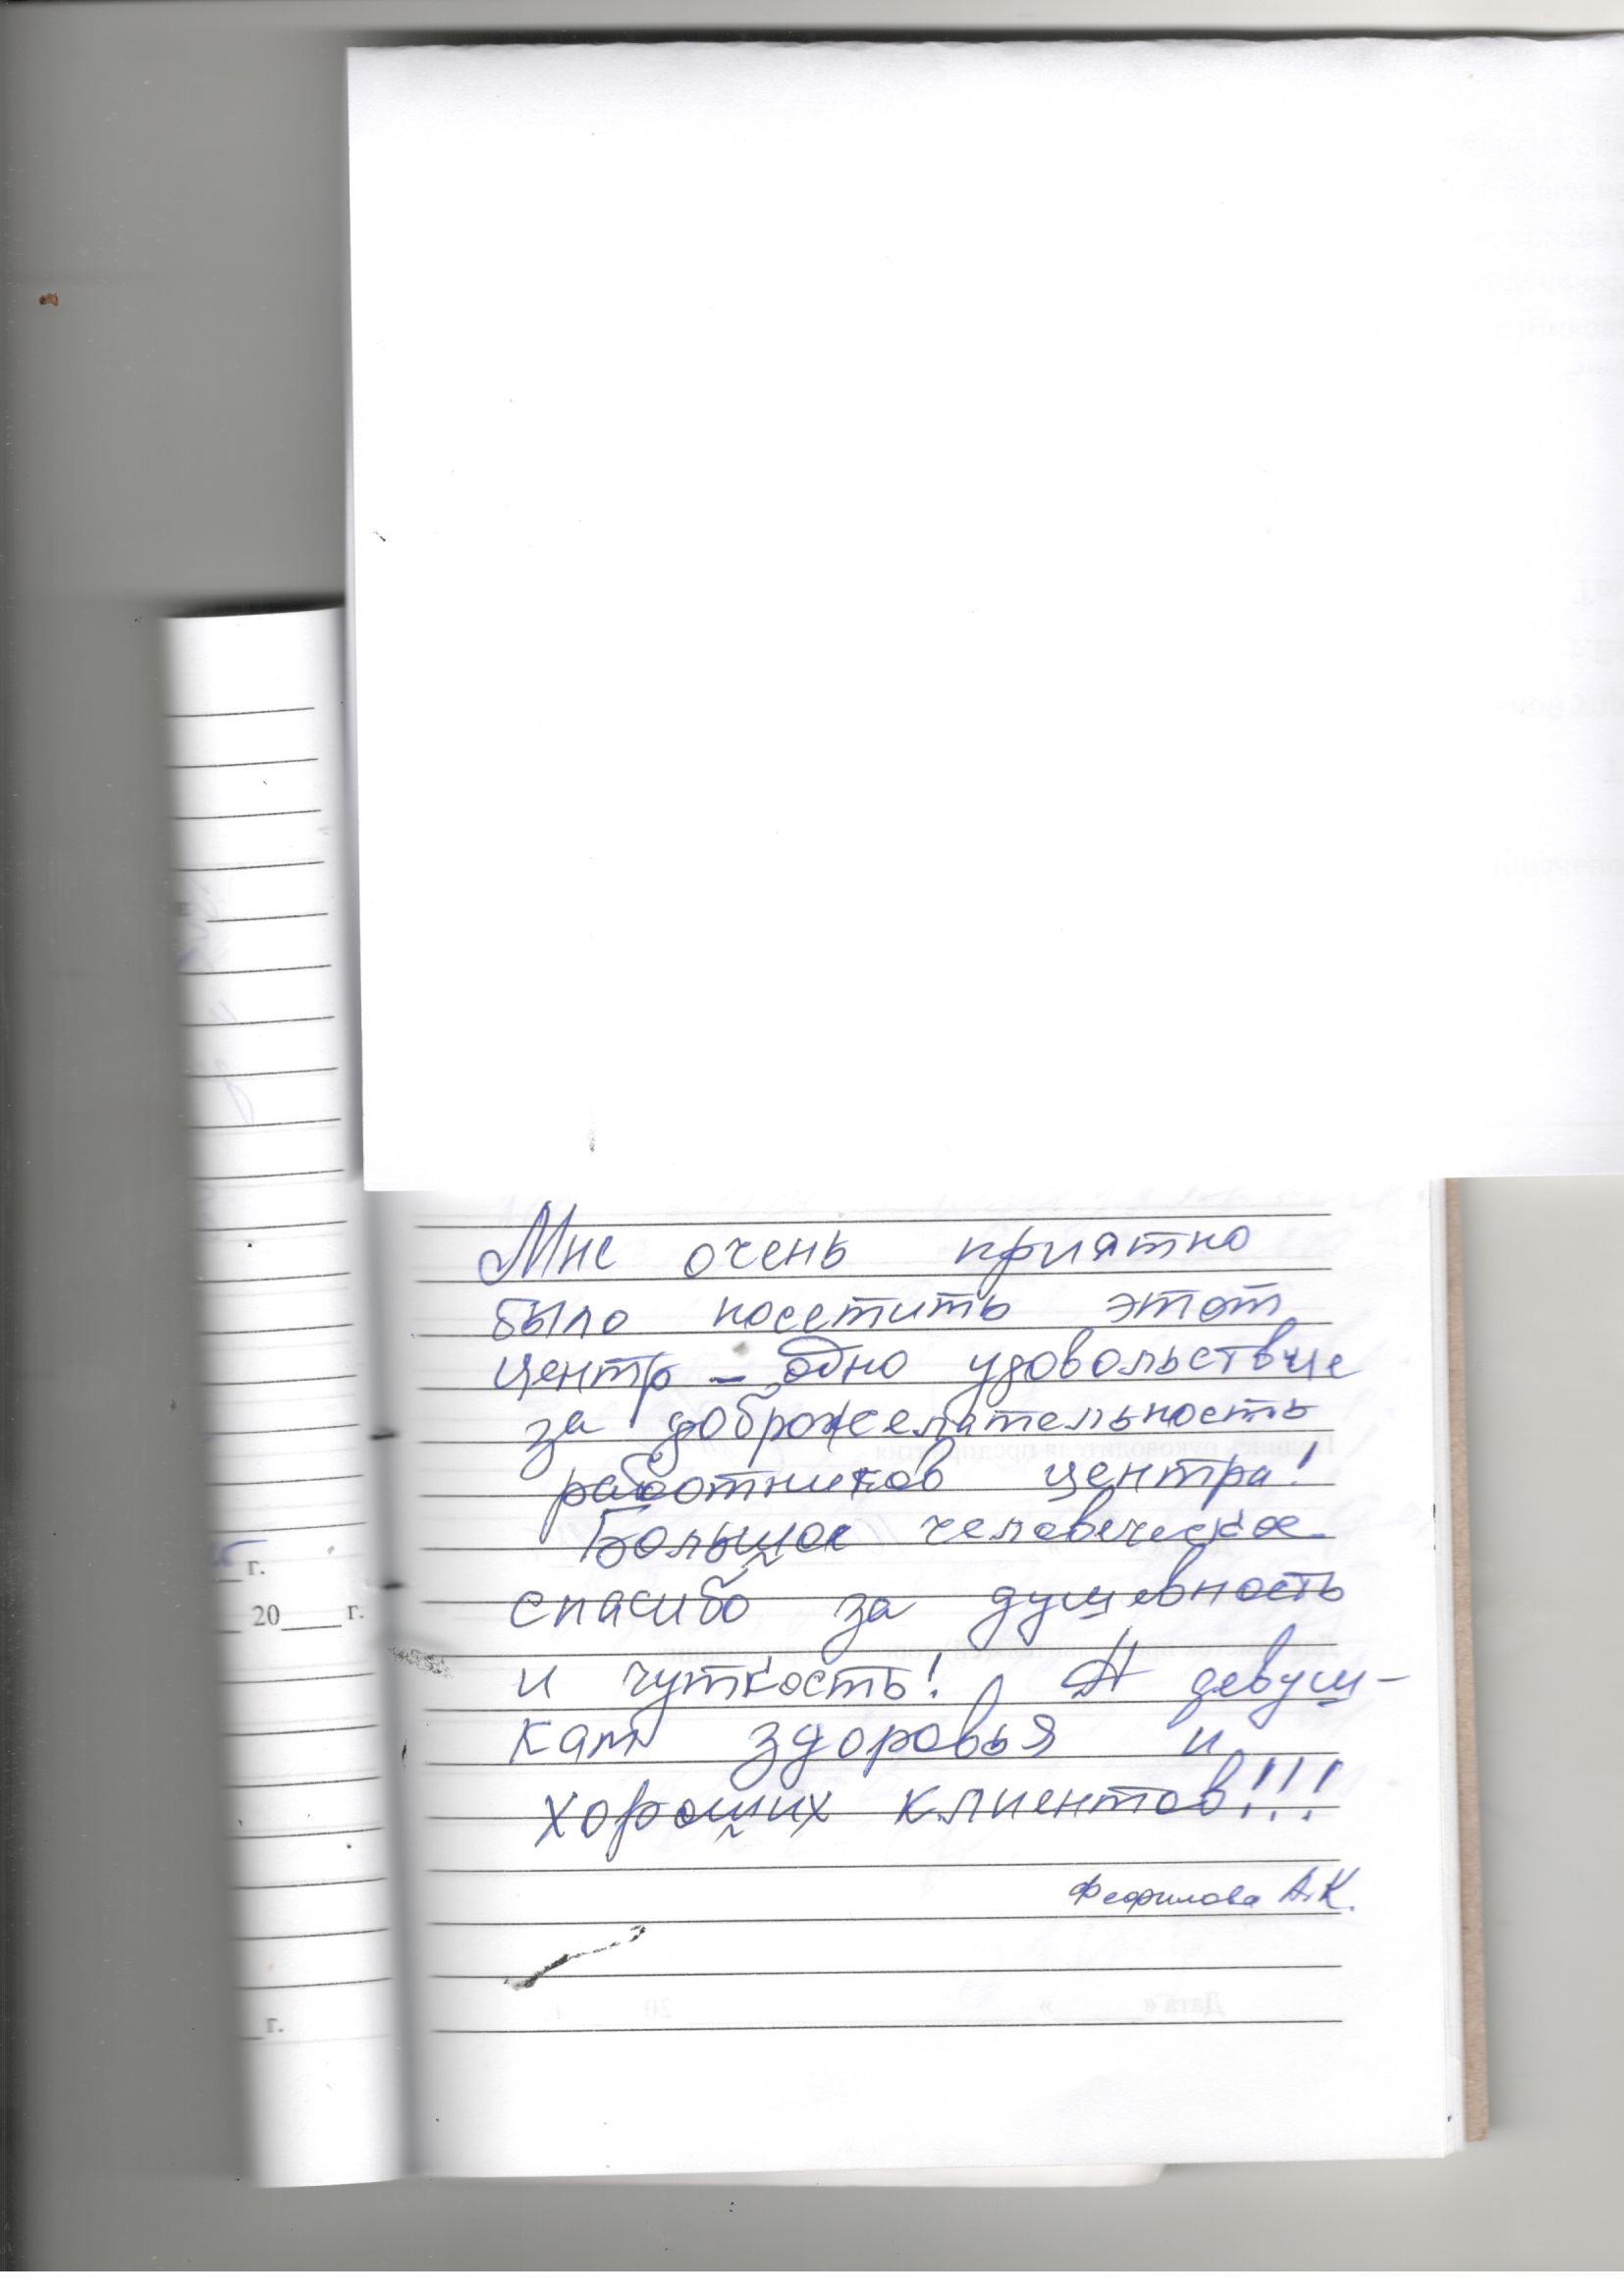 Мне очень приятно
было посетить этот
центр – одно удовольствие
за доброжелательность
работников центра!
Большое человеческое
спасибо за душевность
и чуткость! А девуш-
кам здоровья и
хороших клиентов!!!
Феофилова А.К.
г.
20____ г.
г.